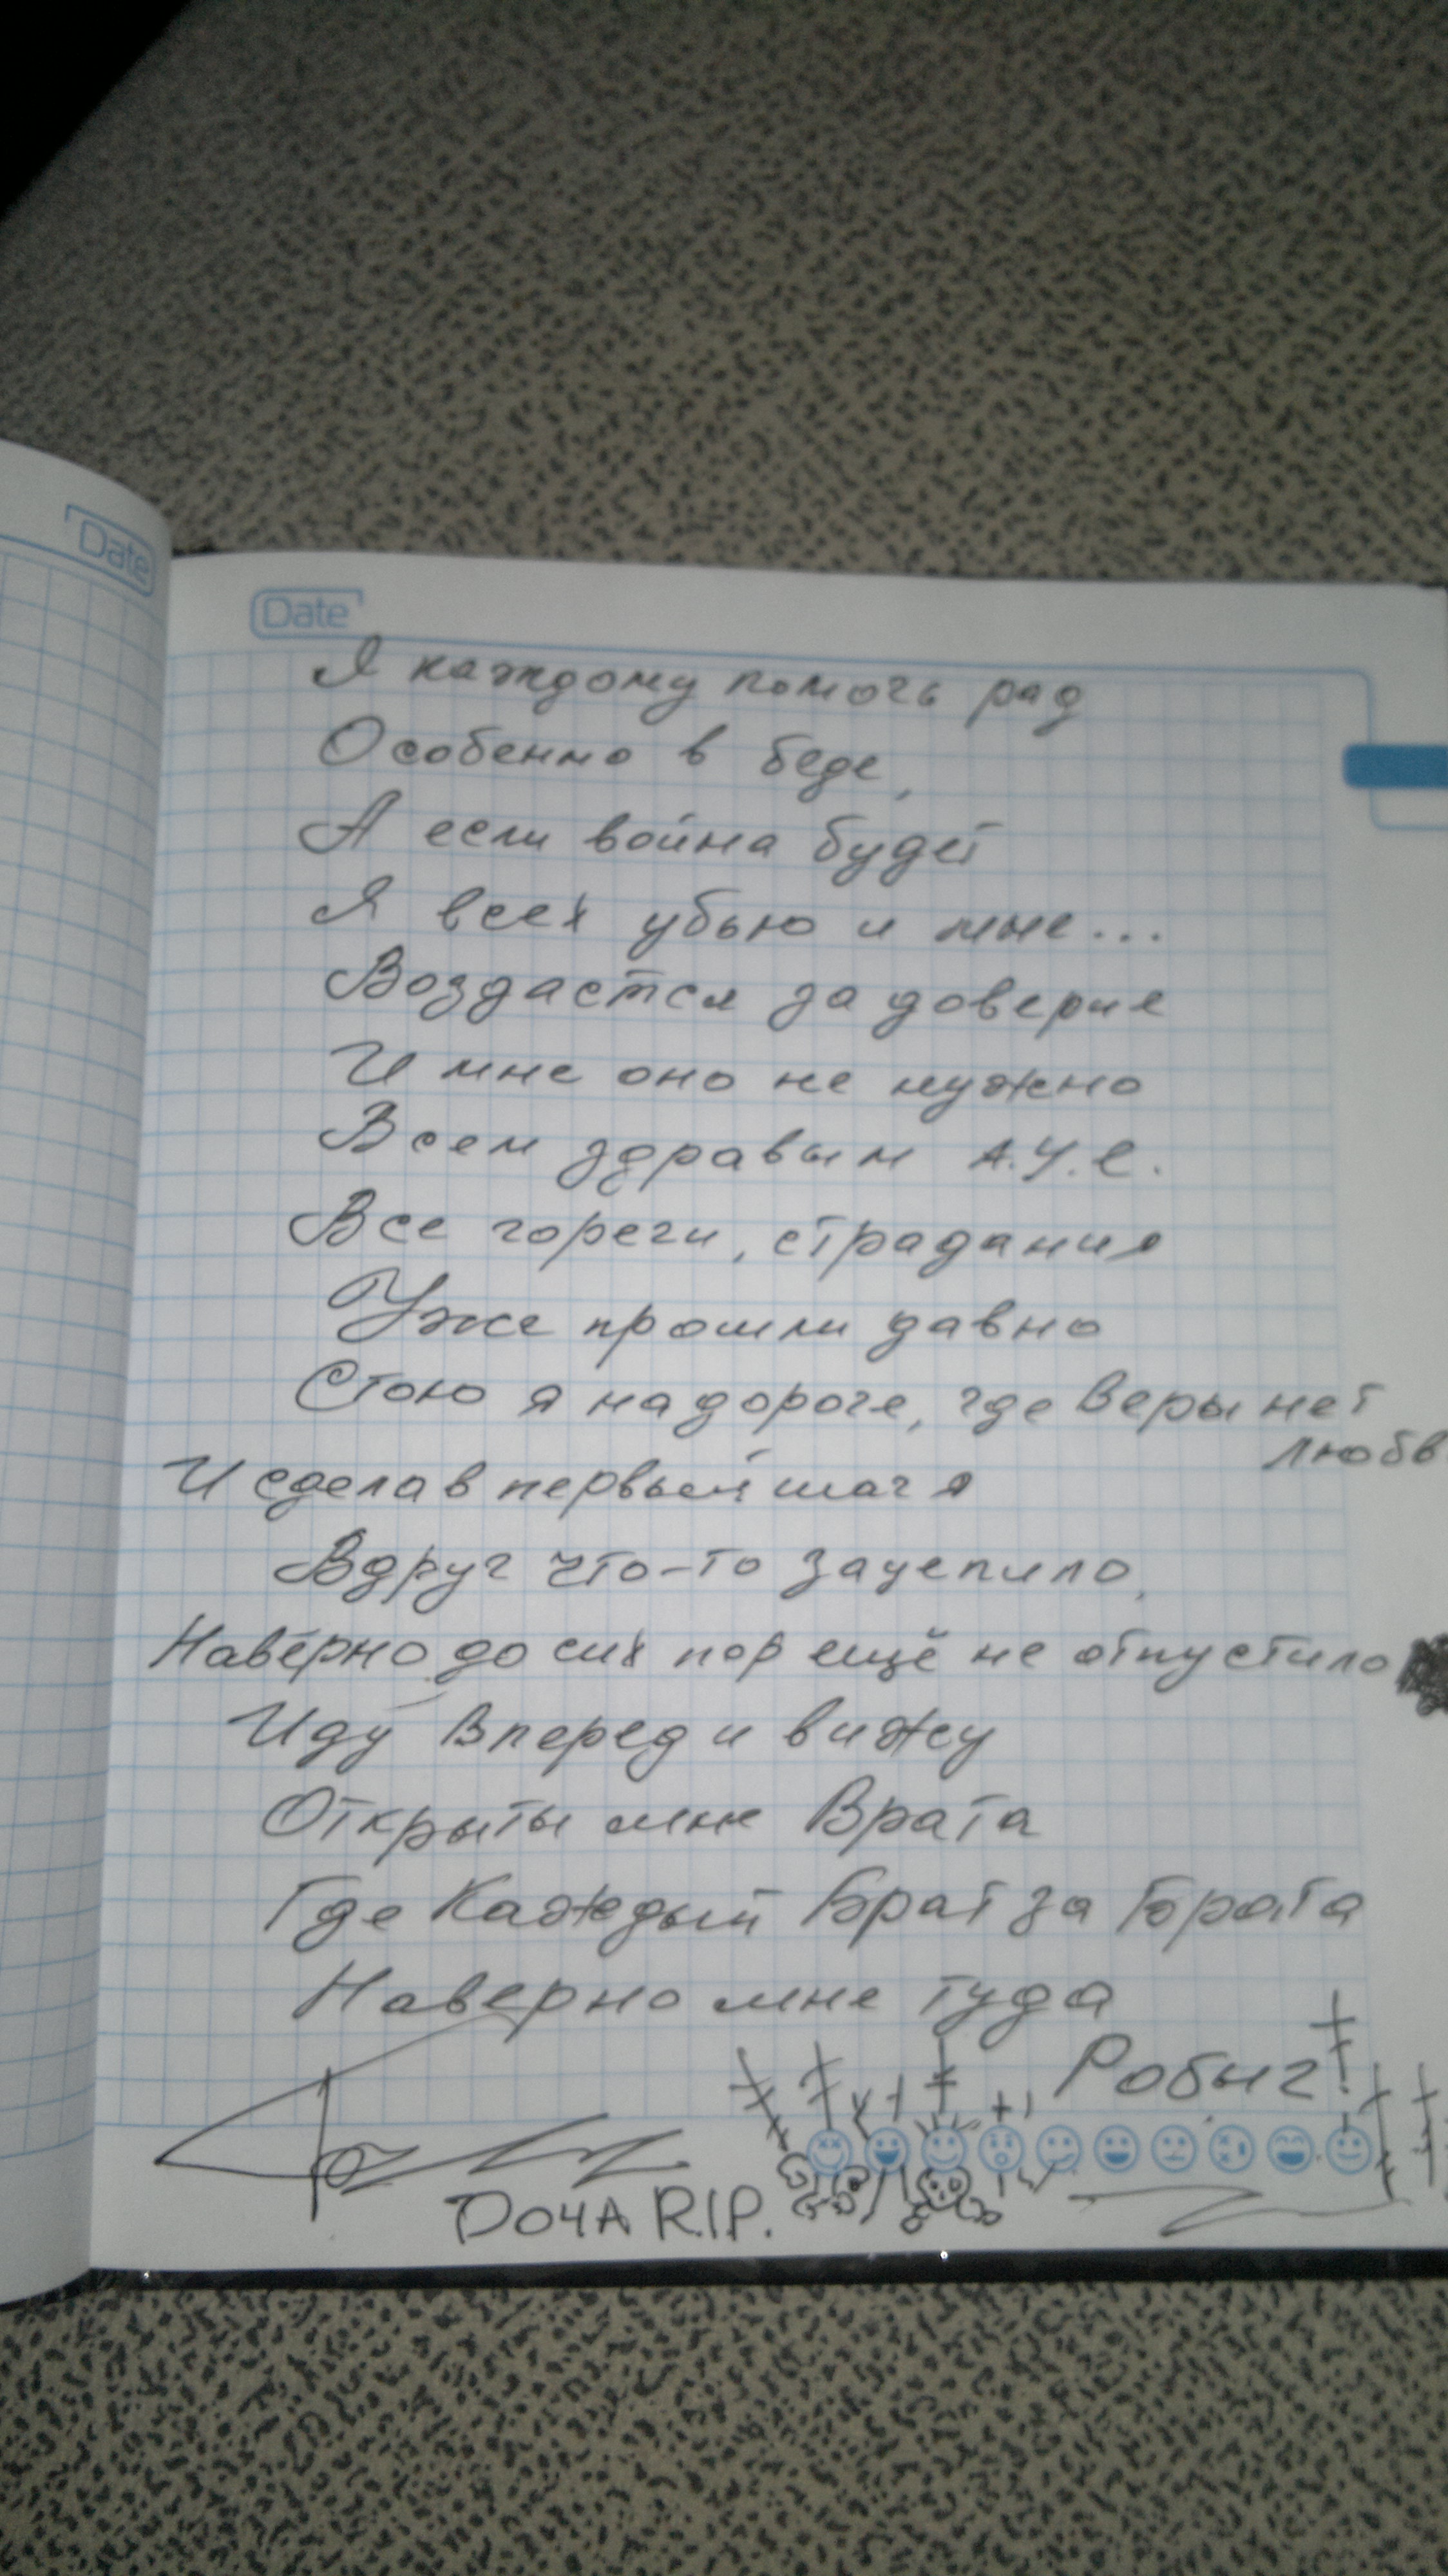 Date
Date
Я каждому помочь рад
Особенно в беде,
А если война будет
Я всех убью и мне...
Воздастся за доверие
И мне оно не нужно
Всем здравым А.У.Е.
Все гореги, страдания
Уже прошли давно
Стою я на дороге, где Веры нет
любв
И сделав первый шаг я
Вдруг что-то зацепило,
Наверно до сих пор ещё не отпустило
Иду Вперед и вижу
Открыты мне Врата
Где Каждый Брат за Брата
Наверно мне туда
Робыг!
ДОЧА R.I.P.